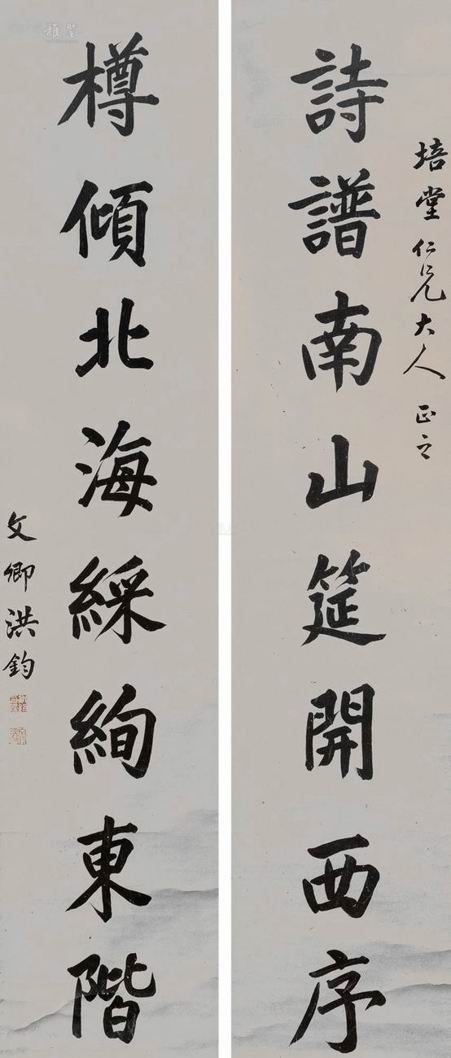 培堂仁兄大人正之
詩譜南山筵開西序
樽傾北海綵絢東階
文卿洪鈞